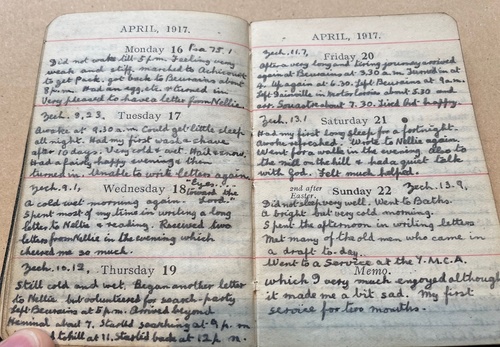 APRIL, 1917.
Monday 16 Psa 75.1
Did not wake till 5 pm. Feeling very
weak and stiff, marched to Achicourt
to get Paid, got back to Beaurains about
8 p.m. Had an egg, etc & turned in.
Very pleased to have a letter from Nellie.
Zech. 9,23. Tuesday 17
Awoke at 9.30 a.m. Could get little sleep
all night. Had my first wash & shave
after 10 days. Very cold & wet. Hail & snow.
Had a fairly happy evening then
turned in. Unable to write letters again
Zech. 9.1, Wednesday 18 "Eyes toward the Lord."
A cold wet morning again.
Spent most of my time in writing a long
letter to Nellie & reading. Received two
letters from Nellie in the evening which
cheered me so much.
Zech. 10,12, Thursday 19
Still cold and wet. Began another letter
to Nellie but volunteered for search-party
Left Beaurains at 5 pm. Arrived beyond
Heninel about 7. Started searching at 9 p.m
to hill at 11. Started back at 12 p. n.
APRIL, 1917.
Zech. 11.7, Friday 20
After a very long and tiring journey arrived
again at Beaurains at 3.30 a.m. Turned in at
4. Up again at 6.30. Left Beaurains at 9 a.m.
Left Dainville in Motor Lorries about 5.30 and
arr. Souastre about 7.30. Tired but happy.
Zech. 13.1 Saturday 21
Had my first long sleep for a fortnight.
Awoke refreshed. Wrote to Nellie again.
Went for a walk in the evening alone to
the mill on the hill & had a quiet talk
with God. Felt much helped.
2nd after Easter. Sunday 22 Zech. 13.9,
Did not sleep very well. Went to Baths.
A bright but very cold morning.
Spent the afternoon in writing letters
Met many of the old men who came in
a draft to-day.
Went to a Service at the Y.M.C.A.
Memo.
which I very much enjoyed although
it made me a bit sad. My first
service for two months.